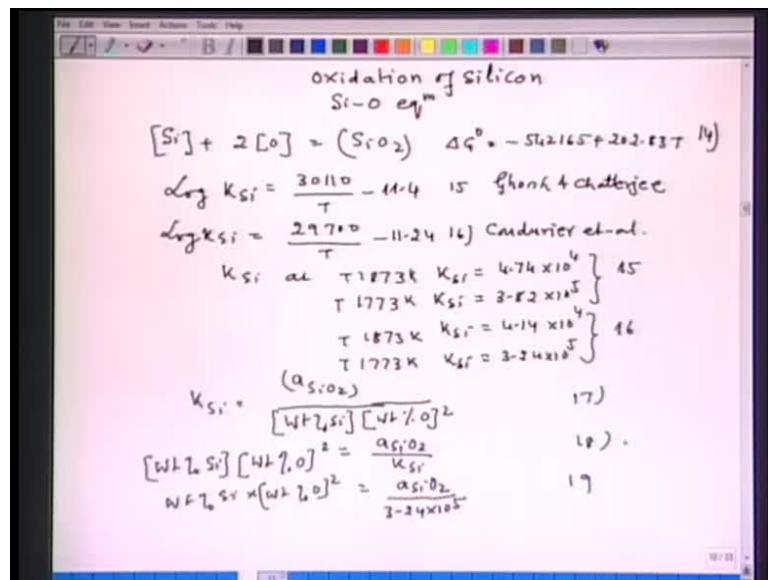 File Edit View Insert Actions Tools Help
Oxidation of Silicon
Si-O eqᵐ
[Si] + 2[O] = (SiO2) ΔG° = -542165+202.83T 14)
Log KSi = 30110/T - 11.4 15 Ghosh & Chatterjee
Log KSi = 29700/T - 11.24 16) et-al.
KSi at T 1873K KSi = 4.74 x10^4 } 15
T 1773K KSi = 3.82 x10^5
T 1873K KSi = 4.14 x10^4 } 16
T 1773K KSi = 3.24x10^5
KSi = (aSiO2) / [wt% Si] [wt% O]^2 17)
[wt% Si] [wt% O]^2 = aSiO2 / KSi 18).
wt% Si x [wt% O]^2 = aSiO2 / 3.24x10^5 19